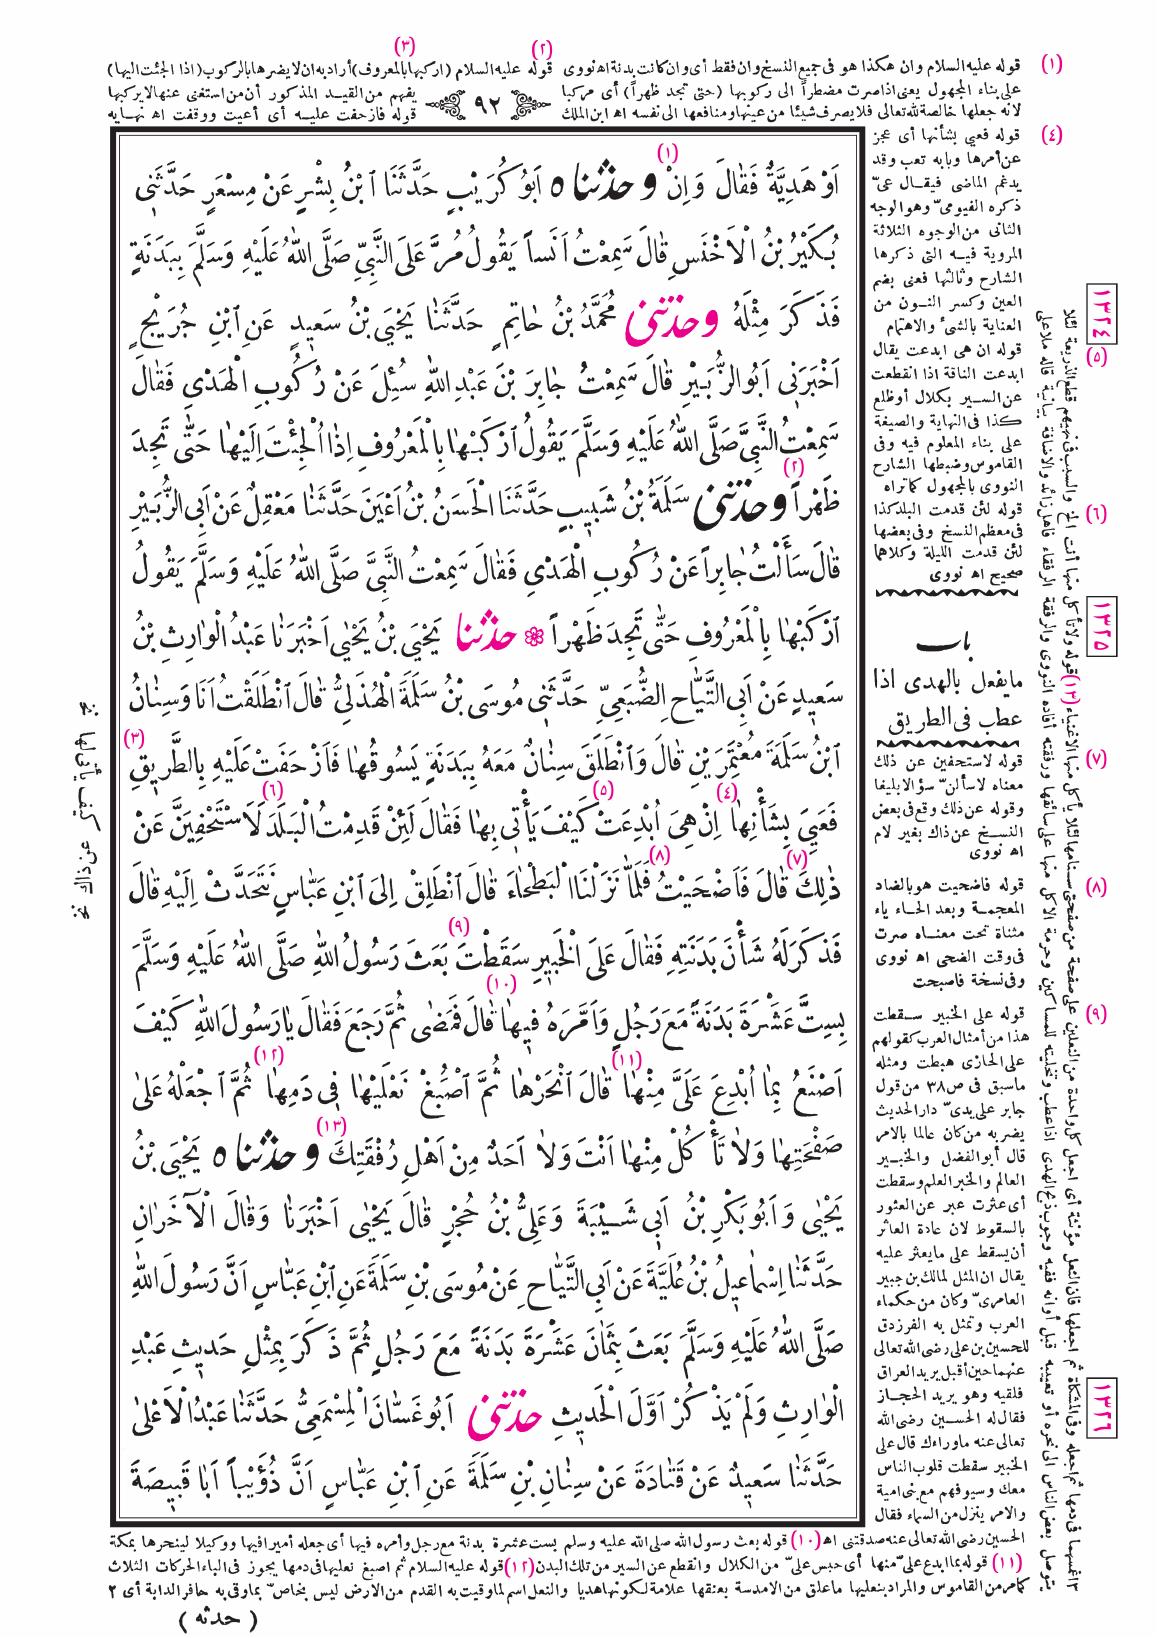 (١) قوله عليه السلام وان هكذا هو فى جميع النسخ وان فقط أى وان كانت بدنة اه نووى (٢) قوله عليه السلام (اركبها بالمعروف) أراد به ان لا يضرها بالركوب (اذا الجئت اليها) (٣)
على بناء المجهول يعنى اذا صرت مضطراً الى ركوبها (حتى تجد ظهراً) أى مركبا
يفهم من القيد المذكور أن من استغنى عنها لا يركبها
لانه جعلها خالصة لله تعالى فلا يصرف شيئا من عينها ومنافعها الى نفسه اه ابن الملك
قوله فازحفت عليه أى أعيت ووقفت اه نهايه
٩٢
اَوْ هَدِيَّةٌ فَقَالَ وَاِنْ (١) وحدثنا ٥ اَبُو كُرَيْبٍ حَدَّثَنَا ابْنُ بِشْرٍ عَنْ مِسْعَرٍ حَدَّثَنِى
بُكَيْرُ بْنُ الْاَخْنَسِ قَالَ سَمِعْتُ اَنَساً يَقُولُ مُرَّ عَلَى النَّبِيِّ صَلَّى اللّٰهُ عَلَيْهِ وَسَلَّمَ بِبَدَنَةٍ
فَذَكَرَ مِثْلَهُ وحدثنى مُحَمَّدُ بْنُ حَاتِمٍ حَدَّثَنَا يَحْيَى بْنُ سَعِيدٍ عَنِ ابْنِ جُرَيْجٍ
اَخْبَرَنِى اَبُو الزُّبَيْرِ قَالَ سَمِعْتُ جَابِرَ بْنَ عَبْدِ اللّٰهِ سُئِلَ عَنْ رُكُوبِ الْهَدْىِ فَقَالَ
سَمِعْتُ النَّبِيَّ صَلَّى اللّٰهُ عَلَيْهِ وَسَلَّمَ يَقُولُ ارْكَبْهَا بِالْمَعْرُوفِ اِذَا اُلْجِئْتَ اِلَيْهَا حَتّٰى تَجِدَ
ظَهْراً (٢) وحدثنى سَلَمَةُ بْنُ شَبِيبٍ حَدَّثَنَا الْحَسَنُ بْنُ اَعْيَنَ حَدَّثَنَا مَعْقِلٌ عَنْ اَبِى الزُّبَيْرِ
قَالَ سَأَلْتُ جَابِراً عَنْ رُكُوبِ الْهَدْىِ فَقَالَ سَمِعْتُ النَّبِيَّ صَلَّى اللّٰهُ عَلَيْهِ وَسَلَّمَ يَقُولُ
ارْكَبْهَا بِالْمَعْرُوفِ حَتّٰى تَجِدَ ظَهْراً ❁ حدثنا يَحْيَى بْنُ يَحْيٰى اَخْبَرَنَا عَبْدُ الْوَارِثِ بْنُ
سَعِيدٍ عَنْ اَبِى التَّيَّاحِ الضُّبَعِيِّ حَدَّثَنِى مُوسَى بْنُ سَلَمَةَ الْهُذَلِيُّ قَالَ انْطَلَقْتُ اَنَا وَسِنَانُ
ابْنُ سَلَمَةَ مُعْتَمِرَيْنِ قَالَ وَانْطَلَقَ سِنَانٌ مَعَهُ بِبَدَنَةٍ يَسُوقُهَا فَاَزْحَفَتْ عَلَيْهِ بِالطَّرِيقِ (٣)
فَعَيِىَ بِشَأْنِهَا (٤) اِنْ هِىَ اُبْدِعَتْ (٥) كَيْفَ يَأْتِى بِهَا فَقَالَ لَئِنْ قَدِمْتُ الْبَلَدَ (٦) لَاَسْتَحْفِيَنَّ عَنْ
ذٰلِكَ (٧) قَالَ فَاَضْحَيْتُ (٨) فَلَمَّا نَزَلْنَا الْبَطْحَاءَ قَالَ انْطَلِقْ اِلَى ابْنِ عَبَّاسٍ نَتَحَدَّثْ اِلَيْهِ قَالَ
فَذَكَرَ لَهُ شَأْنَ بَدَنَتِهِ فَقَالَ عَلَى الْخَبِيرِ سَقَطْتَ (٩) بَعَثَ رَسُولُ اللّٰهِ صَلَّى اللّٰهُ عَلَيْهِ وَسَلَّمَ
بِسِتَّ عَشْرَةَ بَدَنَةً مَعَ رَجُلٍ وَاَمَّرَهُ فِيهَا (١٠) قَالَ فَمَضٰى ثُمَّ رَجَعَ فَقَالَ يَا رَسُولَ اللّٰهِ كَيْفَ
اَصْنَعُ بِمَا اُبْدِعَ عَلَىَّ مِنْهَا (١١) قَالَ انْحَرْهَا ثُمَّ اصْبُغْ نَعْلَيْهَا فِى دَمِهَا (١٢) ثُمَّ اجْعَلْهُ عَلٰى
صَفْحَتِهَا وَلَا تَأْكُلْ مِنْهَا اَنْتَ وَلَا اَحَدٌ مِنْ اَهْلِ رُفْقَتِكَ (١٣) وحدثنا ٥ يَحْيَى بْنُ
يَحْيٰى وَاَبُو بَكْرِ بْنُ اَبِى شَيْبَةَ وَعَلِىُّ بْنُ حُجْرٍ قَالَ يَحْيٰى اَخْبَرَنَا وَقَالَ الْآخَرَانِ
حَدَّثَنَا اِسْمَاعِيلُ بْنُ عُلَيَّةَ عَنْ اَبِى التَّيَّاحِ عَنْ مُوسَى بْنِ سَلَمَةَ عَنِ ابْنِ عَبَّاسٍ اَنَّ رَسُولَ اللّٰهِ
صَلَّى اللّٰهُ عَلَيْهِ وَسَلَّمَ بَعَثَ بِثَمَانَ عَشْرَةَ بَدَنَةً مَعَ رَجُلٍ ثُمَّ ذَكَرَ بِمِثْلِ حَدِيثِ عَبْدِ
الْوَارِثِ وَلَمْ يَذْكُرْ اَوَّلَ الْحَدِيثِ حدثنى اَبُو غَسَّانَ الْمِسْمَعِىُّ حَدَّثَنَا عَبْدُ الْاَعْلٰى
حَدَّثَنَا سَعِيدٌ عَنْ قَتَادَةَ عَنْ سِنَانِ بْنِ سَلَمَةَ عَنِ ابْنِ عَبَّاسٍ اَنَّ ذُؤَيْباً اَبَا قَبِيصَةَ
(٤) قوله فعيي بشأنها أى عجز
عن أمرها وبابه تعب وقد
يدغم الماضى فيقال عىّ
ذكره الفيومىّ وهو الوجه
الثانى من الوجوه الثلاثة
المروية فيه التى ذكرها
الشارح وثالثها فعنى بضم
العين وكسر النون من
العناية بالشئ والاهتمام
(٥) قوله ان هى ابدعت يقال
ابدعت الناقة اذا انقطعت
عن السير بكلال أو ظلع
كذا فى النهاية والصيغة
على بناء المعلوم فيه وفى
القاموس وضبطها الشارح
النووى بالمجهول كما تراه
(٦) قوله لئن قدمت البلد كذا
فى معظم النسخ وفى بعضها
لئن قدمت الليلة وكلاهما
صحيح اه نووى
باب
ما يفعل بالهدى اذا
عطب فى الطريق
(٧) قوله لاستحفين عن ذلك
معناه لاسألنّ سؤالا بليغا
وقوله عن ذلك وقع فى بعض
النسخ عن ذاك بغير لام
اه نووى
(٨) قوله فاضحيت هو بالضاد
المعجمة وبعد الحاء ياء
مثناة تحت معناه صرت
فى وقت الضحى اه نووى
وفى نسخة فاصبحت
(٩) قوله على الخبير سقطت
هذا من أمثال العرب كقولهم
على الحازى هبطت ومثله
ما سبق فى ص ٣٨ من قول
جابر على يدىّ دار الحديث
يضربه من كان عالما بالامر
قال أبو الفضل والخبير
العالم والخبر العلم وسقطت
أى عثرت عبر عن العثور
بالسقوط لان عادة العاثر
أن يسقط على ما يعثر عليه
يقال ان المثل لمالك بن جبير
العامرىّ وكان من حكماء
العرب وتمثل به الفرزدق
للحسين بن على رضى الله تعالى
عنهما حين أقبل يريد العراق
فلقيه وهو يريد الحجاز
فقال له الحسين رضى الله
تعالى عنه ما وراءك قال على
الخبير سقطت قلوب الناس
معك وسيوفهم مع بنى امية
والامر ينزل من السماء فقال
الحسين رضى الله تعالى عنه صدقتنى اه (١٠) قوله بعث رسول الله صلى الله عليه وسلم بست عشرة بدنة مع رجل وأمره فيها أى جعله أميرا فيها ووكيلا لينحرها بمكة
(١١) قوله بما ابدع علىّ منها أى حبس علىّ من الكلال وانقطع عن السير من تلك البدن (١٢) قوله عليه السلام ثم اصبغ نعليها فى دمها يجوز فى الباء الحركات الثلاث
كما مر من القاموس والمراد بنعليها ما علق من الامدسة بعنقها علامة لكونها هديا والنعل اسم لما وقيت به القدم من الارض ليس بخاصّ بما وقى به حافر الدابة أى ٢
( حدثه )
١٣٢٤
١٣٢٥
١٣٢٦
كيف يأتى لها نخ
عن ذاك نخ